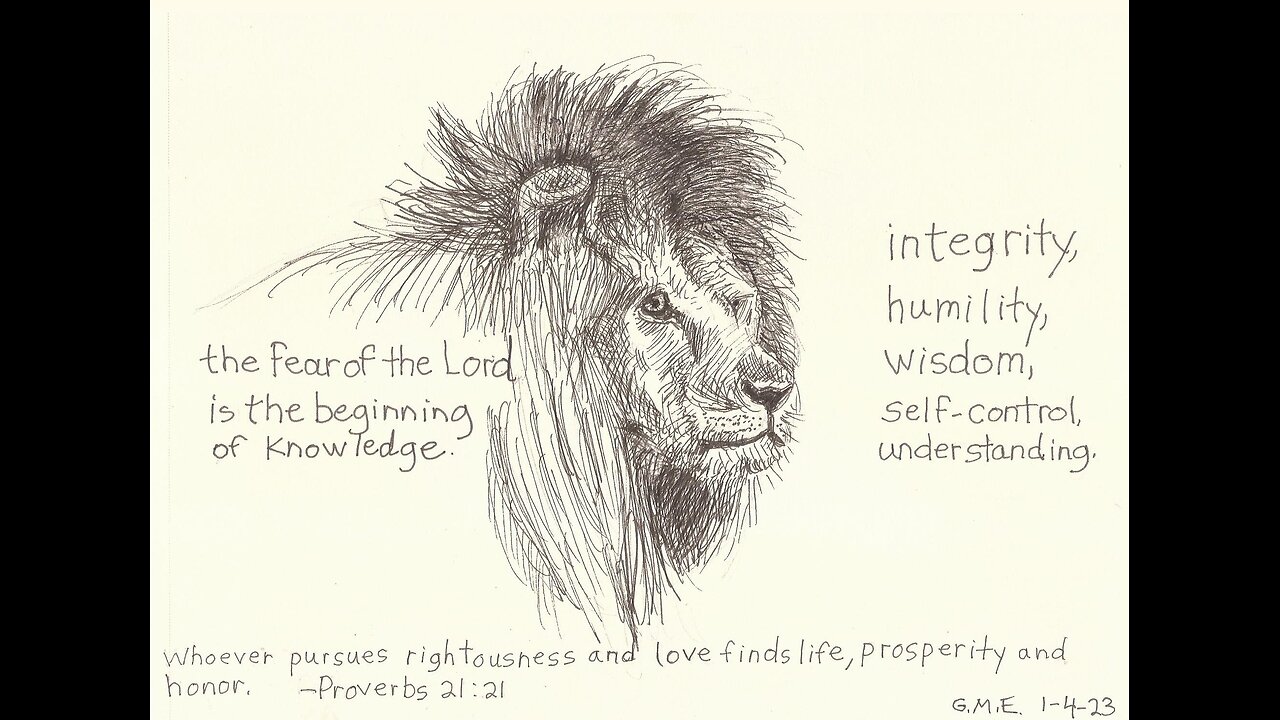 the Fear of the Lord
is the beginning
of Knowledge.
integrity,
humility,
wisdom,
self-control,
understanding.
Whoever pursues rightousness and love finds life, prosperity and
honor. -Proverbs 21:21
G.M.E. 1-4-23